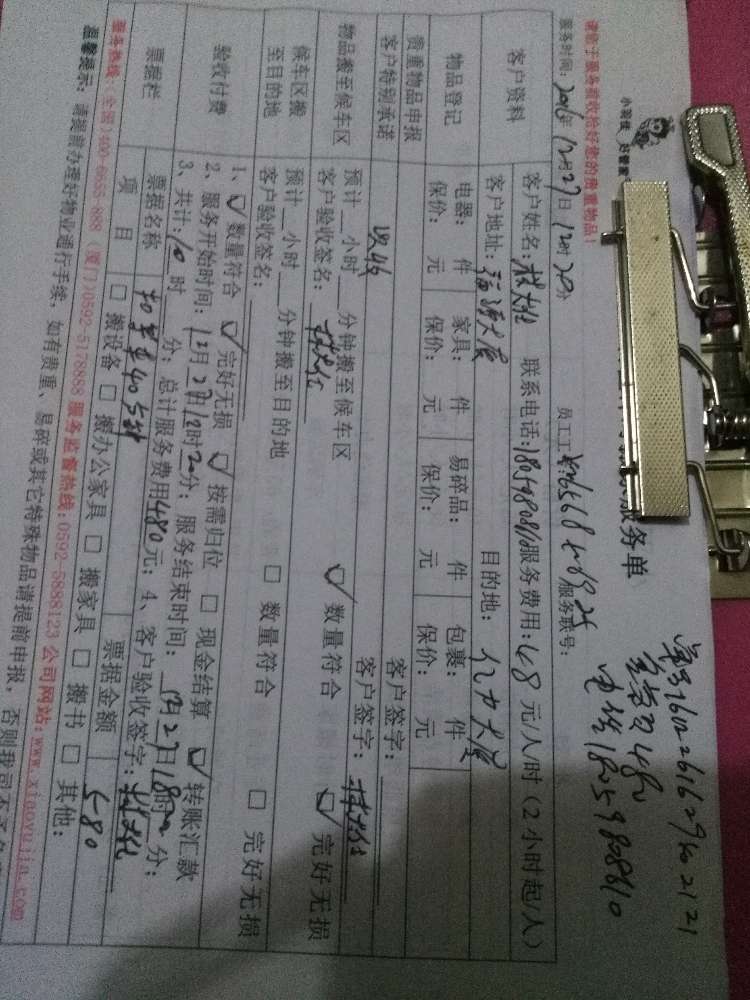 单号1602261629402121
金额480
电话18059808810
小羽佳 好管家
服务单
请您于服务前收拾好您的贵重物品!
服务时间: 2016年12月27日12时20分 员工工号: 服务联号:
客户资料
客户姓名: 联系电话:18059808810 服务费用:48元/人/时(2小时起/人)
客户地址: 大厦 目的地: 亿力大厦
物品登记
电器: 件 家具: 件 易碎品: 件 包裹: 件
保价: 元 保价: 元 保价: 元 保价: 元
贵重物品申报
客户特别承诺
客户签字:
客户签字:
物品搬至候车区
预计 小时 分钟搬至候车区 ☑ 数量符合 ☑ 完好无损
客户验收签名:
候车区搬至目的地
预计 小时 分钟搬至目的地 □ 数量符合 □ 完好无损
客户验收签名:
验收付费
1、☑ 数量符合 ☑ 完好无损 ☑ 按需归位 □ 现金结算 ☑ 转账汇款
2、服务开始时间: 12月27日12时20分; 服务结束时间: 12月27日18时20分;
3、共计:10时 分; 总计服务费用480元; 4、客户验收签字:
票据栏
票据名称 票据金额 580
项目 □ 搬设备 □ 搬办公家具 □ 搬家具 □ 搬书 □ 其他:
服务热线:(全国)400-6655-888 (厦门)0592-5178888 服务监督热线:0592-5888123 公司网站:www.xiaoyujia.com
温馨提示: 请提前办理好物业通行手续,如有贵重、易碎或其它特殊物品请提前申报,否则我司不予